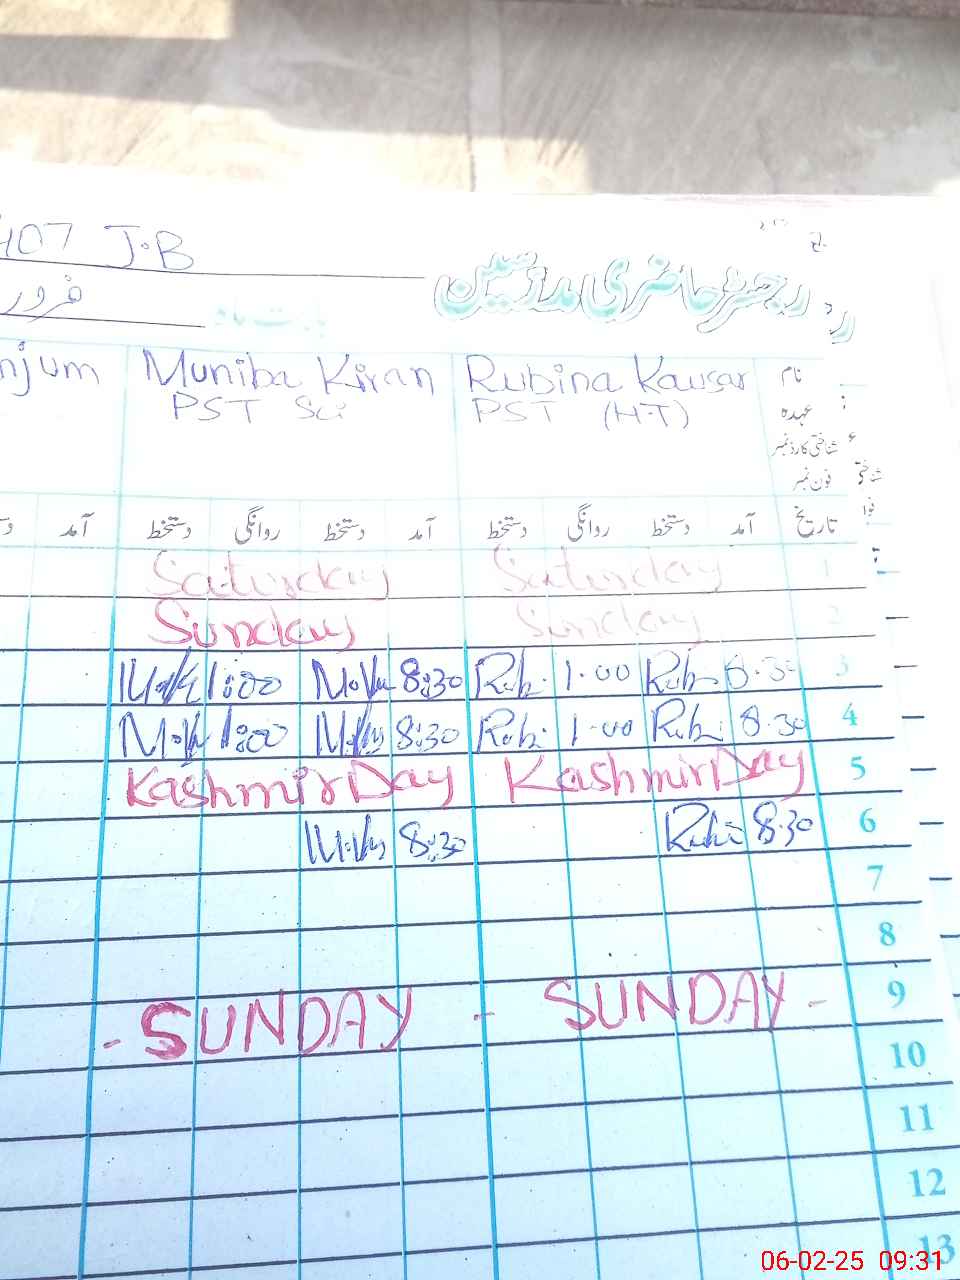 407 J.B
رجسٹر حاضری مدرسین
فرور
بابت ماہ
نام Rubina Kausar Muniba Kiran njum
عہدہ PST (H-T) PST Sci
شناختی کارڈ نمبر
فون نمبر
تاریخ آمد دستخط روانگی دستخط آمد دستخط روانگی دستخط آمد
1 Saturday Saturday
2 Sunday Sunday
3 8:30 Rubi 1:00 Rubi 8:30 1:00
4 8:30 Rubi 1:00 Rubi 8:30 1:00
5 Kashmir Day Kashmir Day
6 8:30 Rubi 8:30
7
8
9 - SUNDAY - SUNDAY -
10
11
12
13
06-02-25 09:31